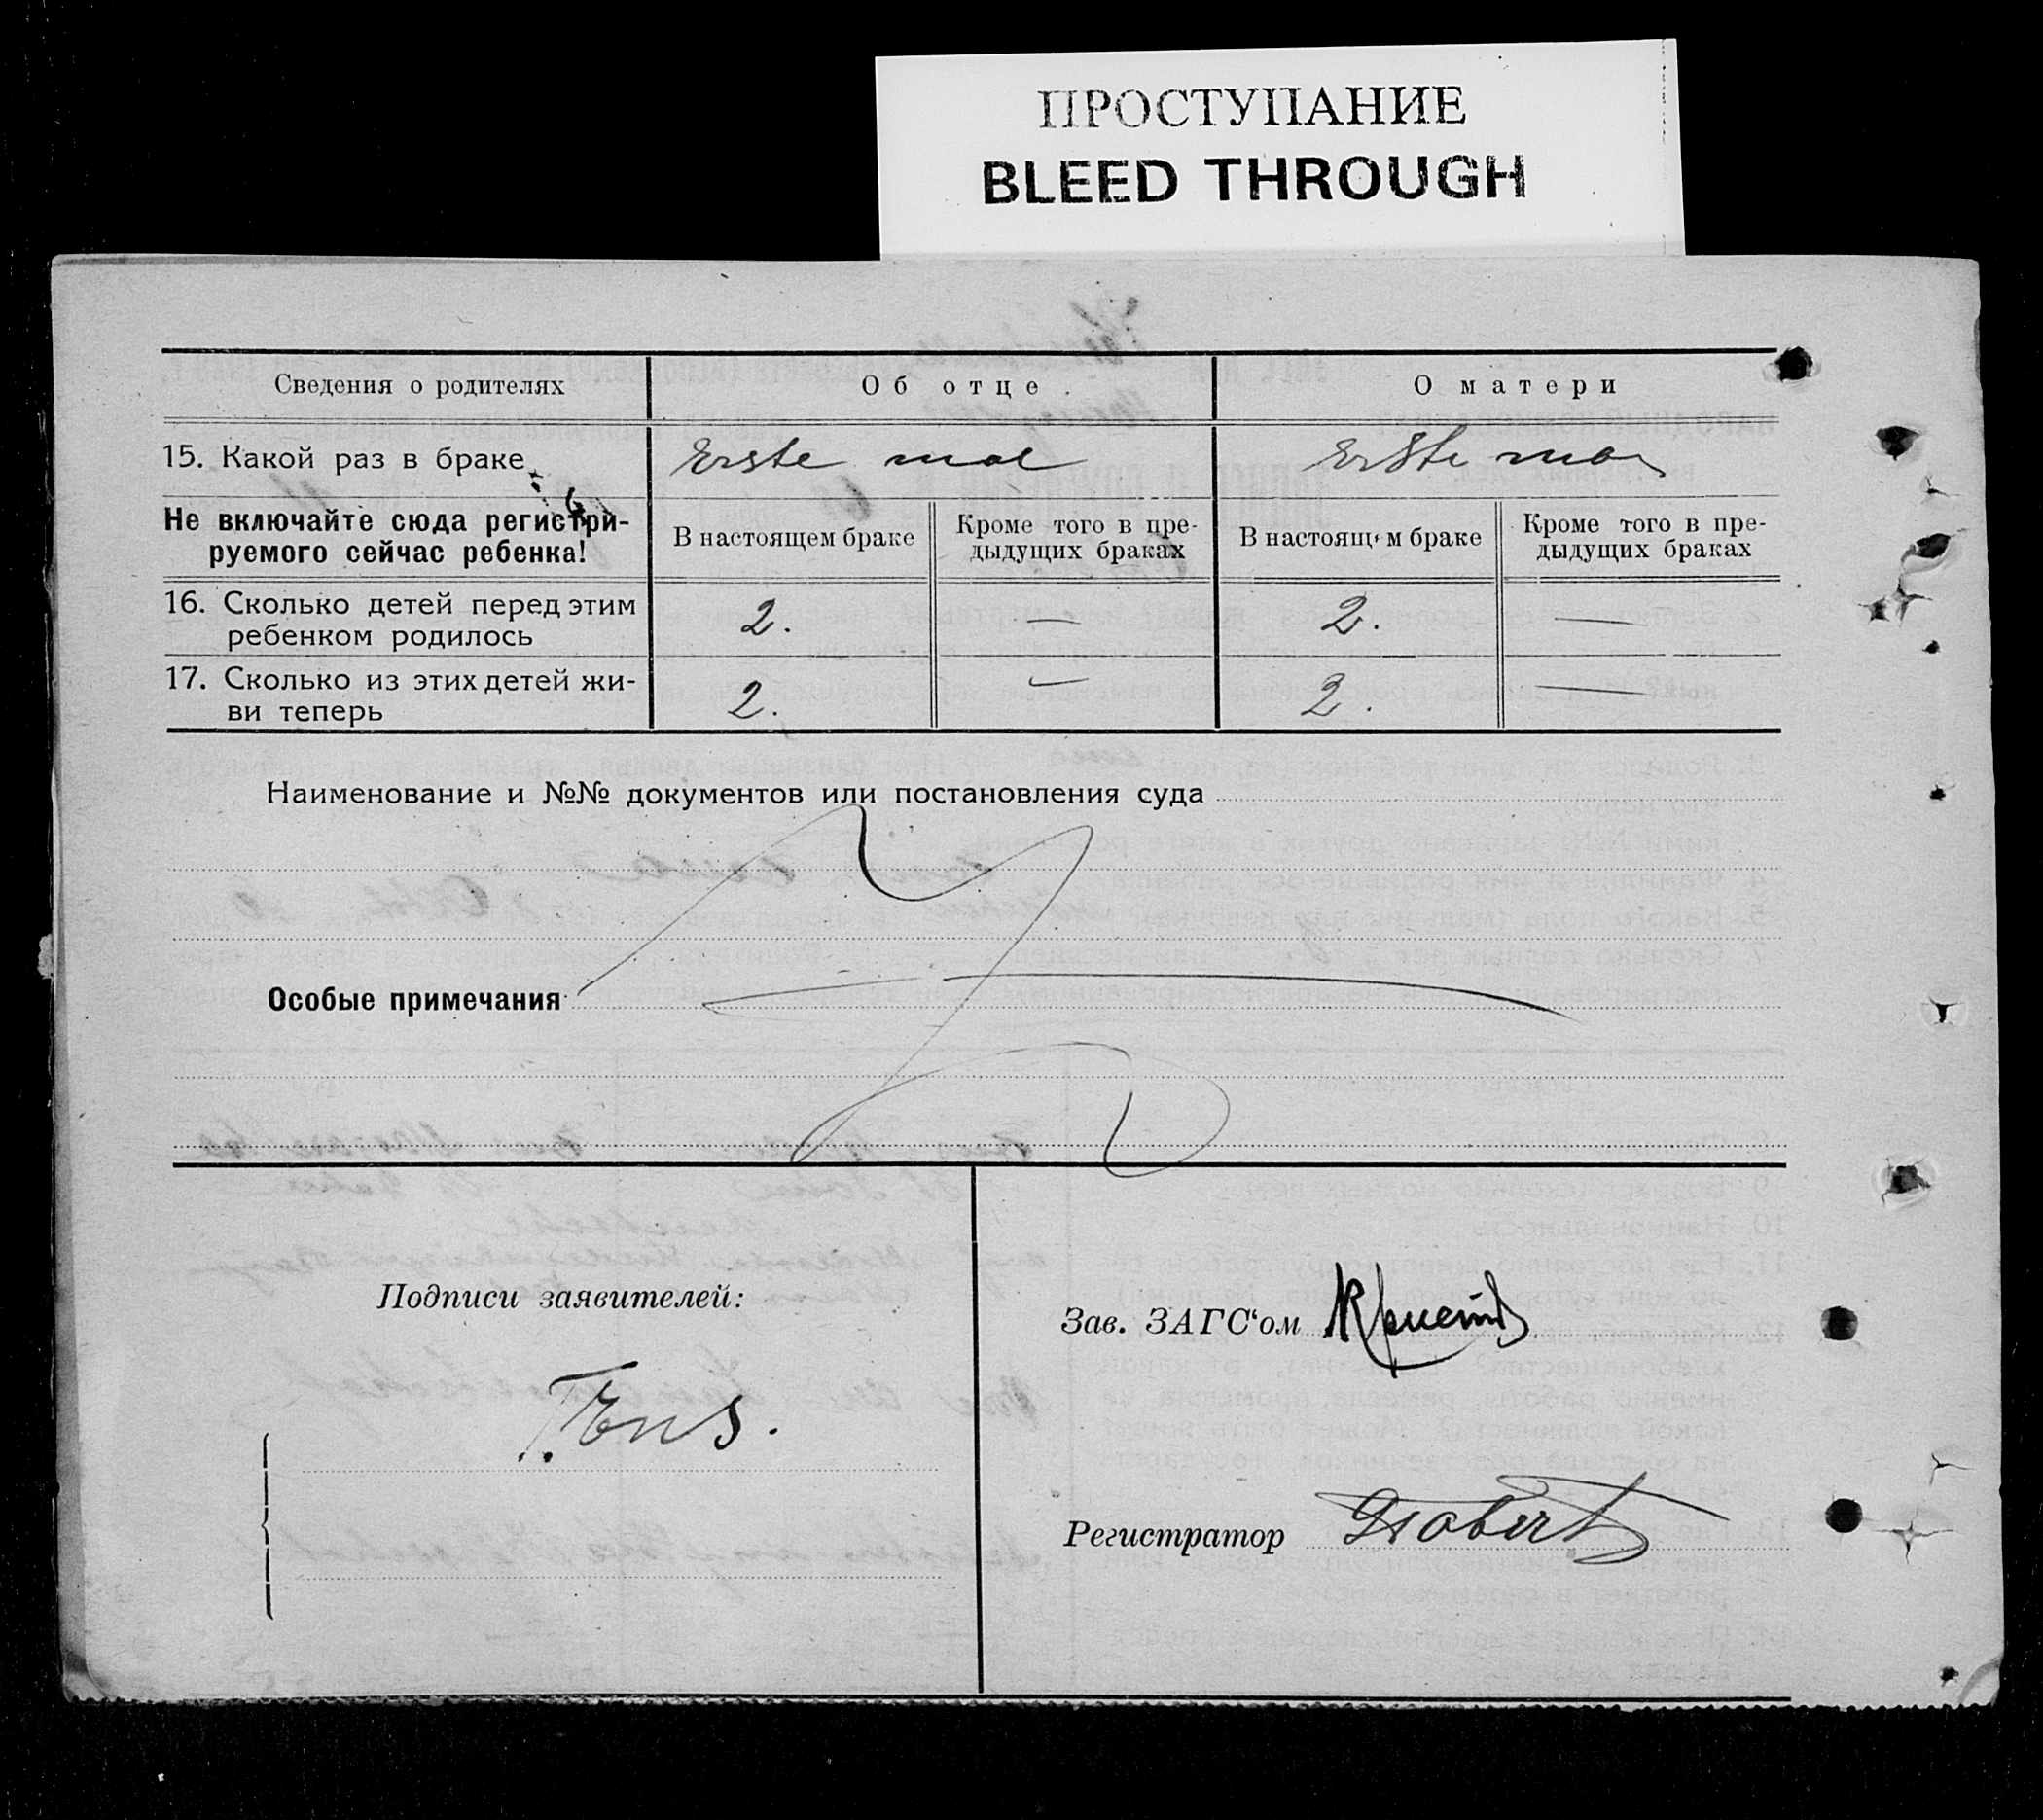 ПРОСТУПАНИЕ
BLEED THROUGH
Сведения о родителях Об отце. О матери
15. Какой раз в браке Erste mal Erste mal
Не включайте сюда регистри-
руемого сейчас ребенка!
В настоящем браке
Кроме того в пре-
дыдущих браках
В настоящем браке
Кроме того в пре-
дыдущих браках
16. Сколько детей перед этим
ребенком родилось
2. — 2. —
17. Сколько из этих детей жи-
ви теперь
2. — 2. —
Наименование и №№ документов или постановления суда
Особые примечания
Подписи заявителей:
Зав. ЗАГС‘ом
Enns.
Регистратор